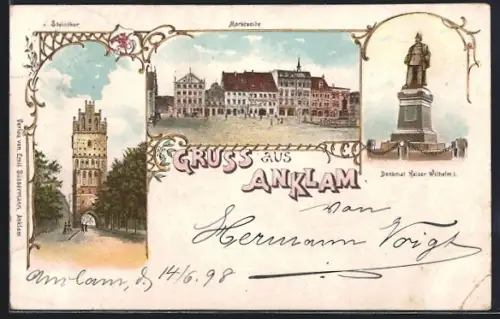 Steinthor
Marktseite
Denkmal Kaiser Wilhelm I.
Gruss aus
Anklam
Verlag von Emil Büssermann, Anklam
von
Hermann Voigt
Anclam, d. 14/6. 98